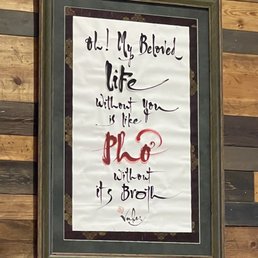 Oh! My Beloved
Life
without you
is like
Phở
without
its Broth